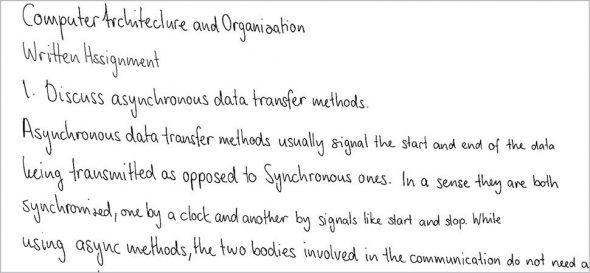 Computer Architecture and Organisation
Written Assignment
1. Discuss asynchronous data transfer methods.
Asynchronous data transfer methods usually signal the start and end of the data
being transmitted as opposed to Synchronous ones. In a sense they are both
synchronized, one by a clock and another by signals like start and stop. While
using async methods, the two bodies involved in the communication do not need a